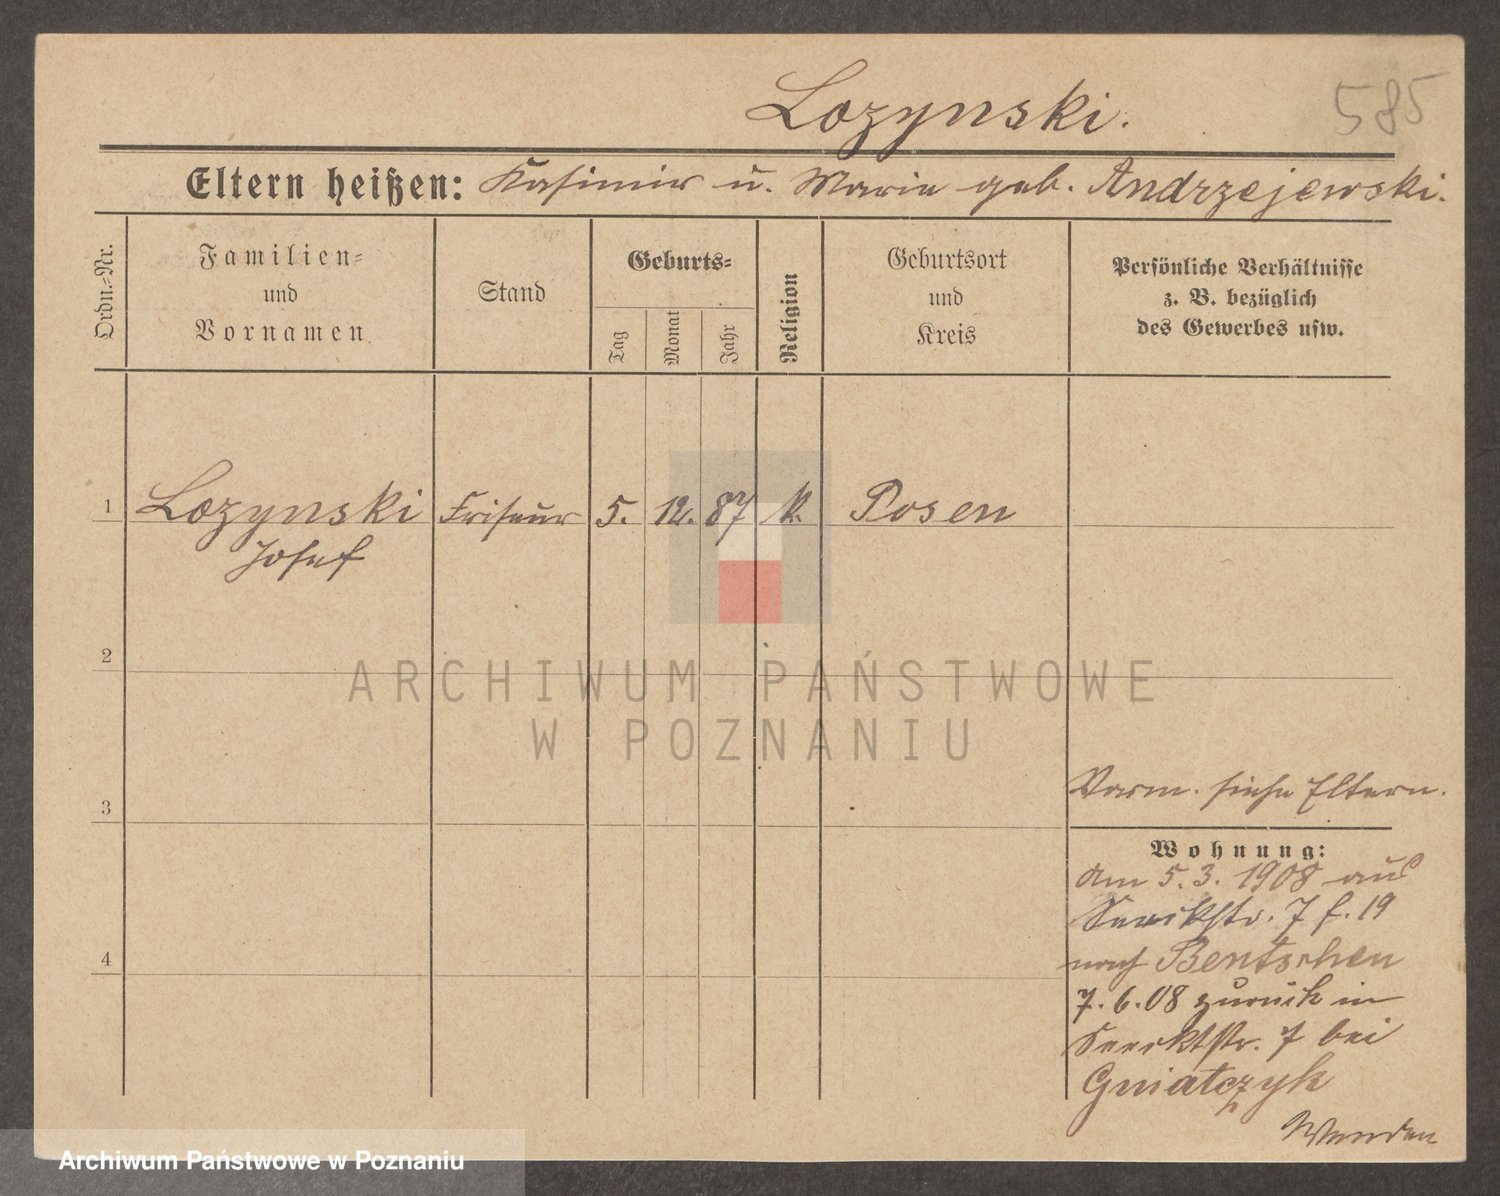 Lozynski.
585
Eltern heißen: Kasimir u. Maria geb. Andrzejewski.
Ordn.-Nr.
Familien-
und
Vornamen
Stand
Geburts-
Tag
Monat
Jahr
Religion
Geburtsort
und
Kreis
Persönliche Verhältnisse
z. B. bezüglich
des Gewerbes usw.
1 Lozynski Friseur 5. 12. 87 k. Posen
Josef
2
ARCHIWUM PAŃSTWOWE
W POZNANIU
3
Verm. siehe Eltern.
Wohnung:
Am 5.3.1908 aus
7 f. 19
nach Bentschen
4
7.6.08 zurück in
7 bei
Gniatczyk
Wenden
Archiwum Państwowe w Poznaniu